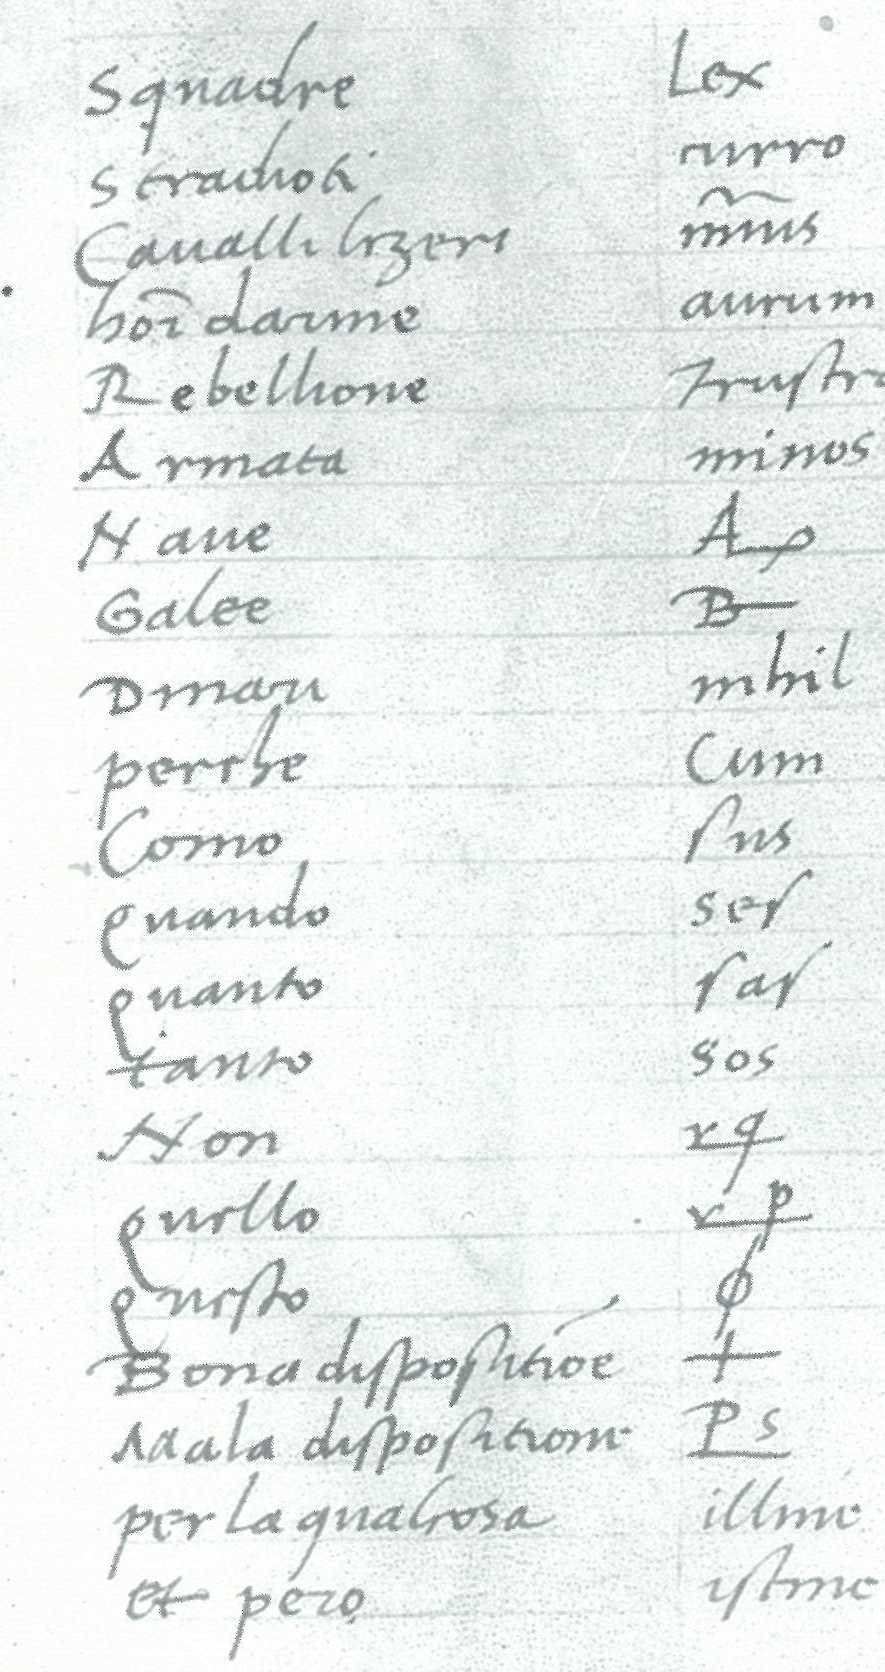 Squadre Lex
Stradioti curro
Caualli lizeri
hoi darme aurum
Rebellione frustra
Armata minos
Naue A
Galee B
Dinari nihil
perche Cum
Como sus
quando ses
quanto sas
tanto sos
Non rq
quello rp
questo ϕ
Bona dispositioe +
Mala dispositione Ps
per la qual cosa illine
et pero istinc